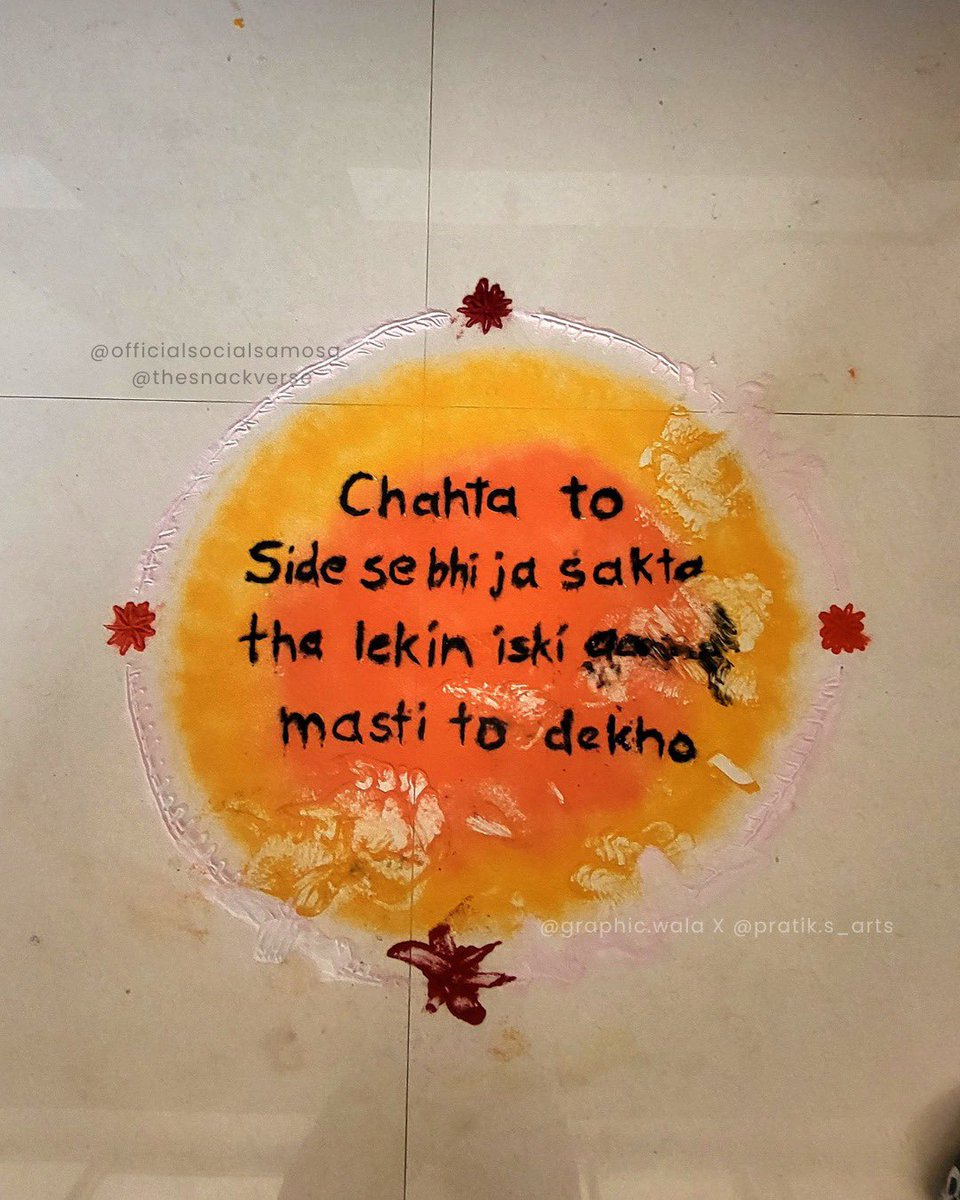 @officialsocialsamosa
@thesnackverse
Chahta to
Side se bhi ja sakta
tha lekin iski
masti to dekho
@graphic.wala X @pratik.s_arts